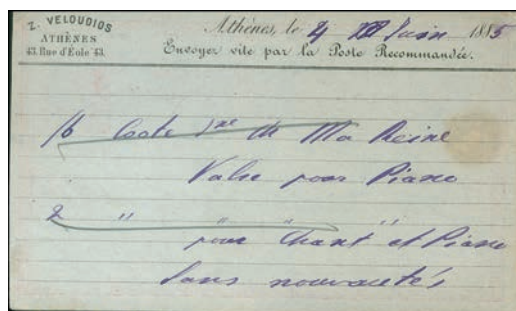 Z. VELOUDIOS
ATHÈNES
43. Rue d'Éole 43.
Athènes, le 4 Juin 1885
Envoyez vite par la Poste Recommandée.
16 Cote Ma Reine
Valse pour Piano
2 " " " "
pour Chant et Piano
Sans nouveautés